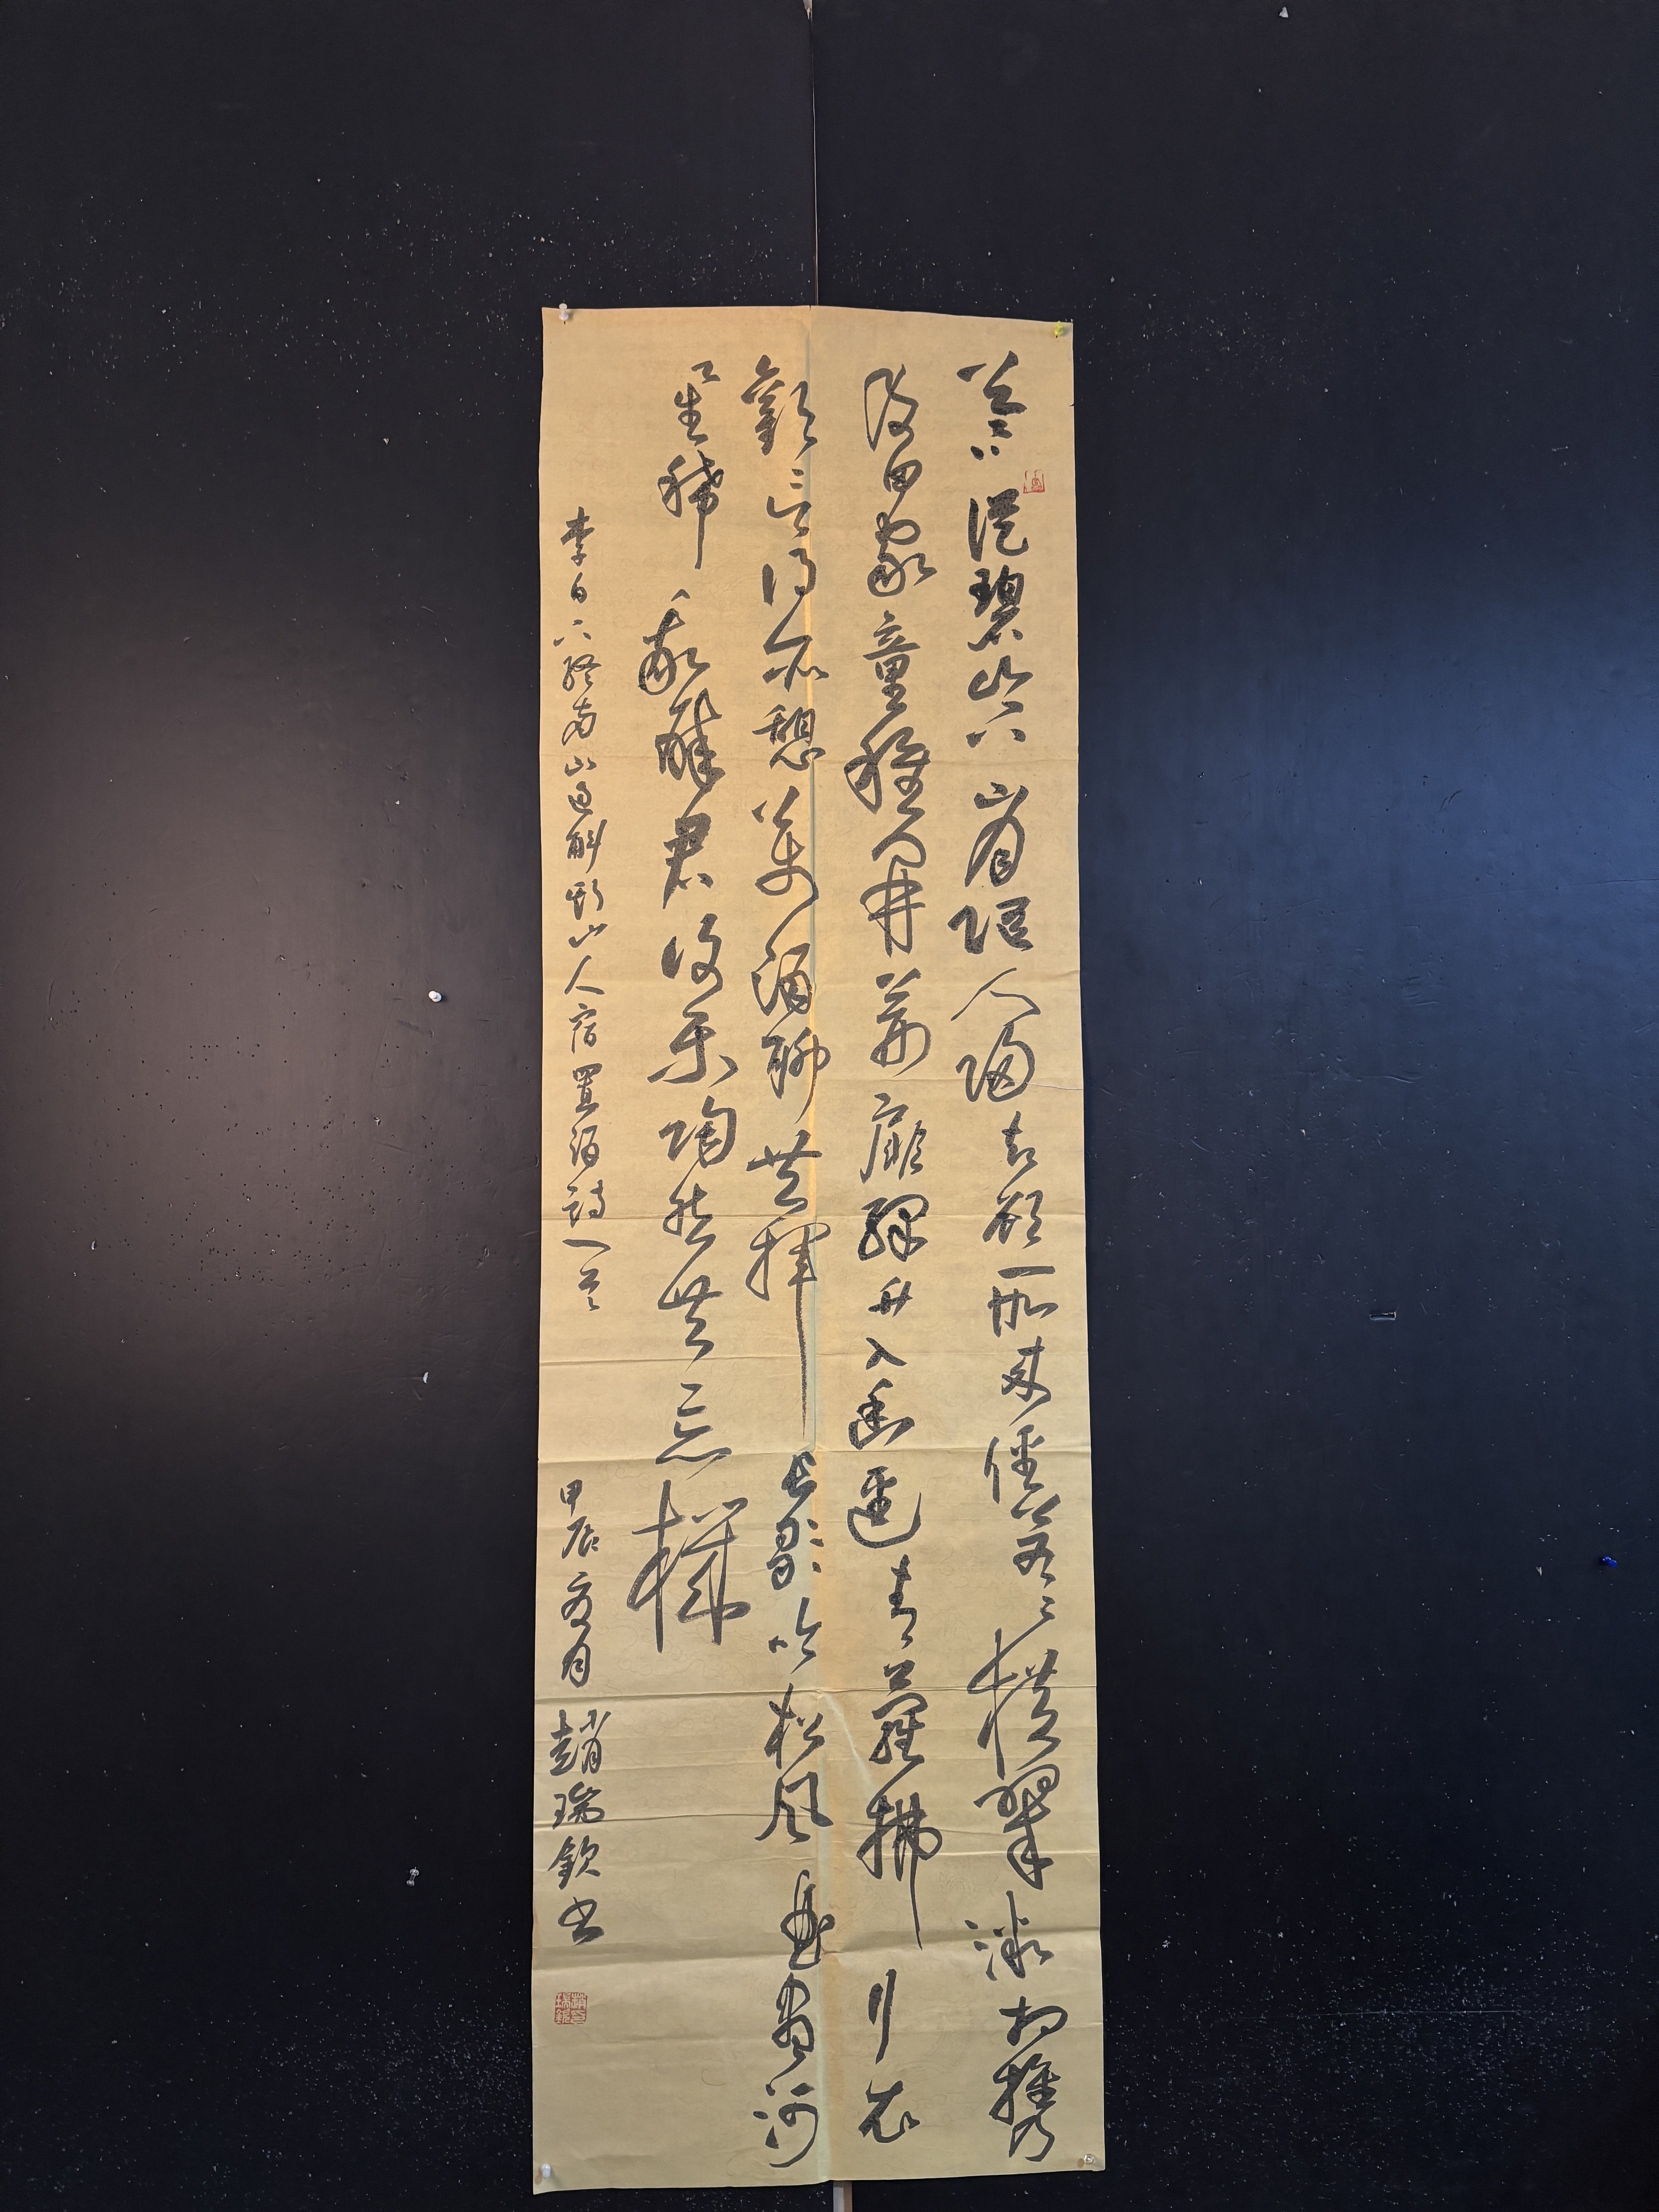 暮從碧山下山月隨人歸却顧所來徑蒼〻橫翠微相携
及田家童稚開荊扉綠竹入幽徑青蘿拂行衣
歡言得所憩美酒聊共揮長歌吟松風曲盡河
星稀我醉君復樂陶然共忘機
李白下終南山過斛斯山人宿置酒詩一首 甲辰夏月 趙瑞欽書